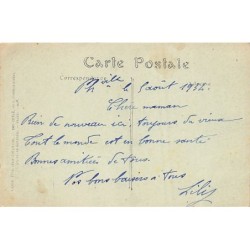 Carte Postale
Correspondance
août 1922
Chère maman
Rien de nouveau ici toujours du vieux
Tout le monde est en bonne santé
Bonnes amitiés de tous.
Vos bons baisers à tous
Lily